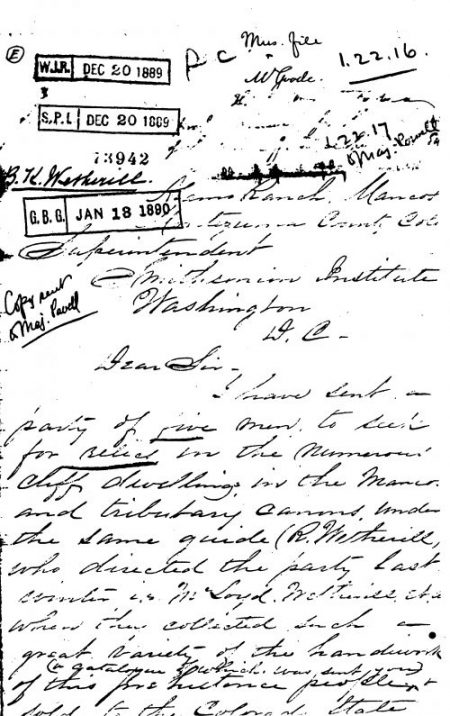 E
P C
Mus. file
1.22.16.
W.J.R. DEC 20 1889
McGode.
S.P.L. DEC 20 1889
1.22.17
73942
Maj. Powell
B. K. Wetherill.
Ranch, Mancos
G.B.G. JAN 18 1890
County, Colo
Superintendent
Smithsonian Institute
Copy sent
to Maj. Powell
Washington
D. C -
Dear Sir -
I have sent a
party of five men, to seek
for relics in the numerous
cliff dwellings in the Manco
and tributary canons, under
the same guide (R. Wetherill,
who directed the party last
winter i.e. McLoyd, Wetherill, et al
when they collected such a
great variety of the handiwork
(a catalogue of which was sent you)
of this pre historic people, &
sold to the Colorado State